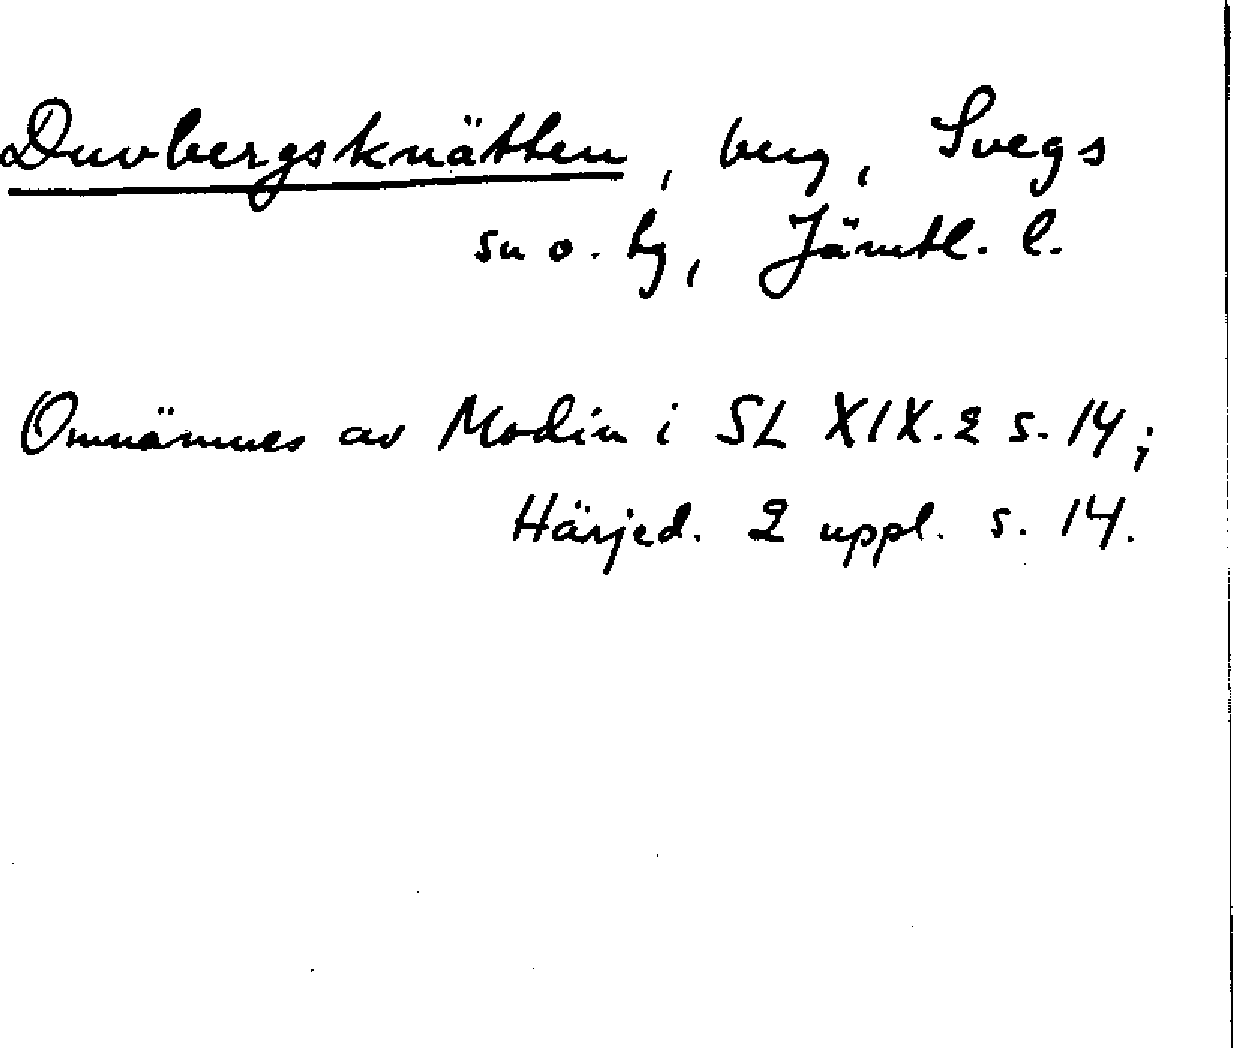 Duvbergsknätten, berg, Svegs
sn o. tg, Jämtl. l.
Omnämnes av Modin i SL XIX.2 s. 14;
Härjed. 2 uppl. s. 14.